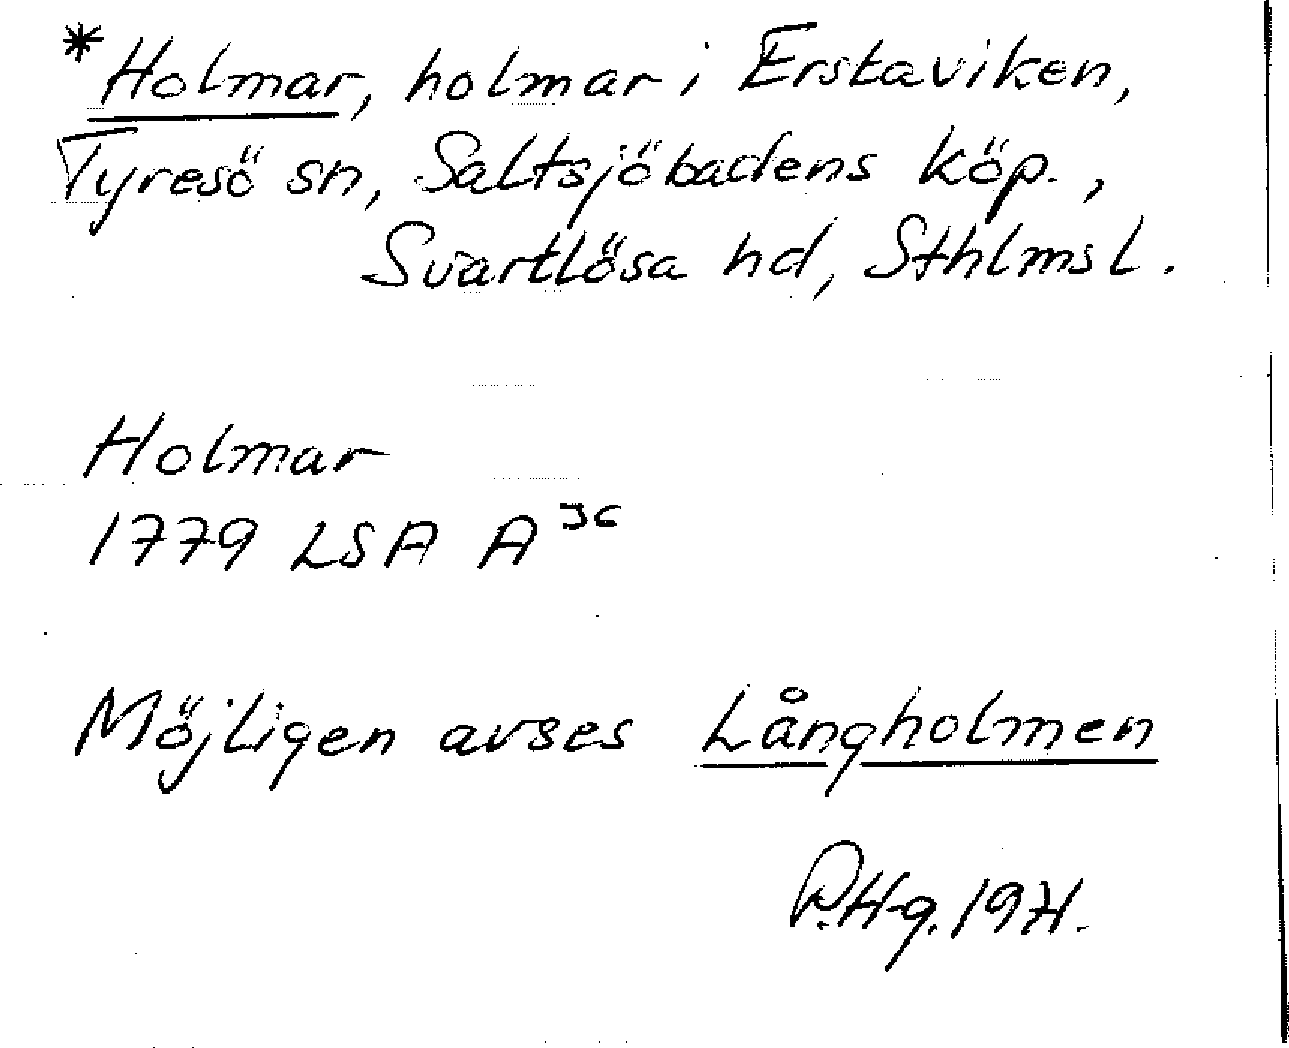 *Holmar, holmar i Erstaviken,
Tyresö sn, Saltsjöbadens köp.,
Svartlösa hd, Sthlms l.
Holmar
1779 LSA A 36
Möjligen avses Långholmen
P.Hg. 1971.